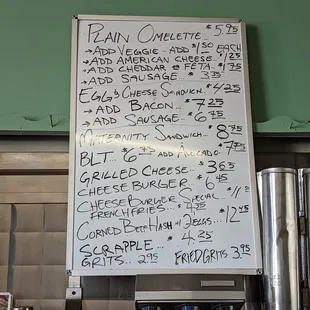 PLAIN OMELETTE.. $5.95
→ADD VEGGIE - ADD $1.50 EACH
→ADD AMERICAN CHEESE. $1.25
→ADD CHEDDAR OR FETA. $1.75
→ADD SAUSAGE... $3.35
EGG & CHEESE SANDWICH.. $4.25
→ADD BACON.. $7.25
→ADD SAUSAGE.. $6.75
MATERNITY SANDWICH.. $8.75
BLT. $6.75 ADD AVOCADO. $7.75
GRILLED CHEESE.. $3.65
CHEESE BURGER. $6.45
CHEESE BURGER SPECIAL
FRENCH FRIES. $4.35
CORNED BEEF HASH + 3 EGGS... $12.45
SCRAPPLE... $4.25
GRITS.. 2.95 FRIED GRITS 3.95